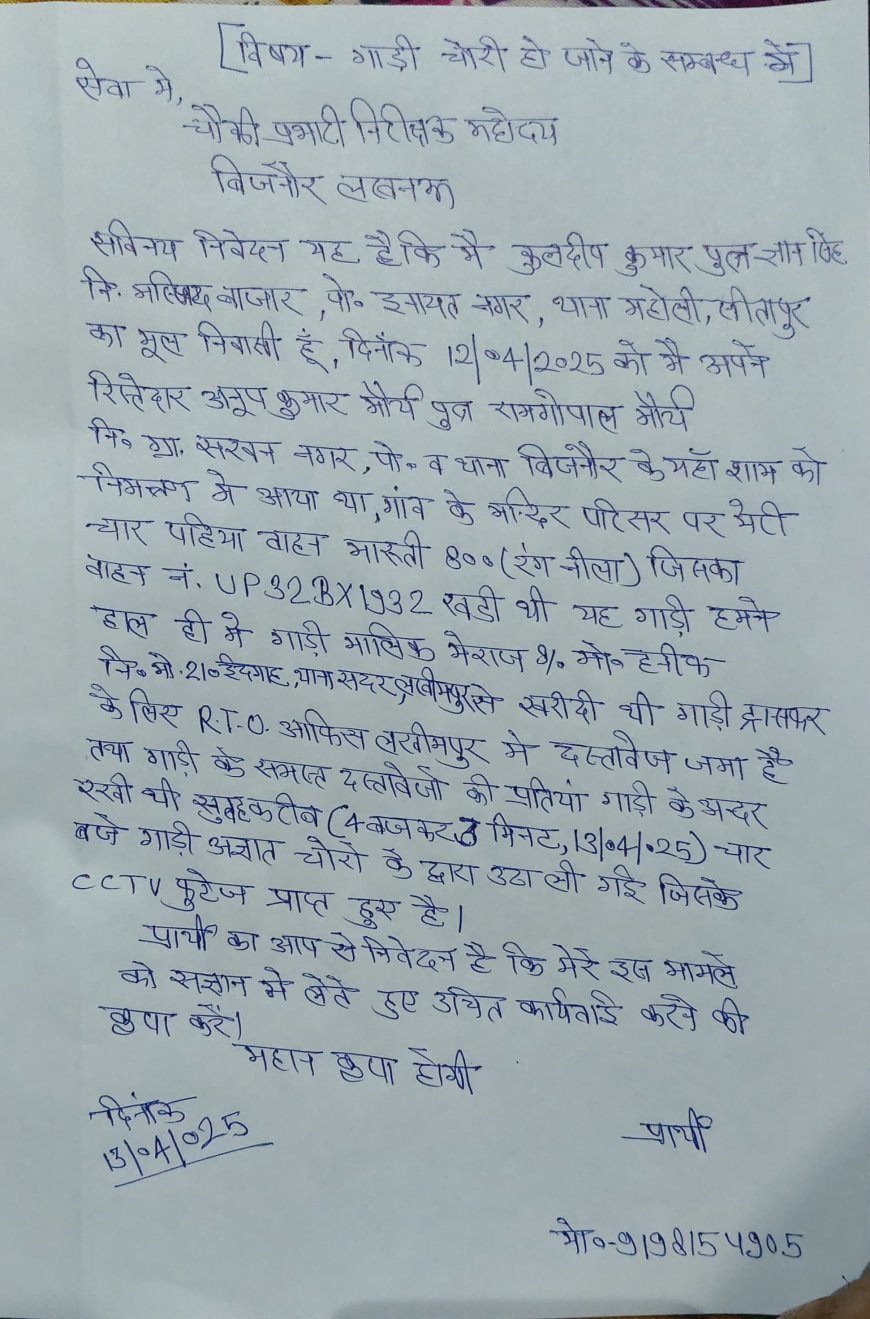 [विषय - गाड़ी चोरी हो जाने के सम्बन्ध में]
सेवा मे,
चौकी प्रभारी निरीक्षक महोदय
बिजनौर लखनऊ
सविनय निवेदन यह है कि मै कुलदीप कुमार पुत्र ज्ञान सिंह
नि. मस्जिद बाजार, पो० इनायत नगर, थाना महोली, सीतापुर
का मूल निवासी हूँ, दिनाँक 12/04/2025 को मै अपने
रिश्तेदार अनूप कुमार मौर्य पुत्र रामगोपाल मौर्य
नि० ग्रा. सरवन नगर, पो० व थाना बिजनौर के यहाँ शाम को
निमन्त्रण मे आया था, गांव के मन्दिर परिसर पर मेरी
चार पहिया वाहन मारुती 800 (रंग नीला) जिसका
वाहन नं. UP32BX1932 खडी थी यह गाड़ी हमने
हाल ही मे गाड़ी मालिक मेराज S/o मो० हनीफ
नि० मो. 210 ईदगाह, थाना सदर, लखीमपुर से खरीदी थी गाड़ी ट्रान्सफर
के लिए R.T.O. आफिस लखीमपुर मे दस्तावेज जमा है
तथा गाड़ी के समस्त दस्तावेजो की प्रतियां गाड़ी के अन्दर
रखी थी सुबह करीब (4 बजकर 3 मिनट, 13/04/025) चार
बजे गाड़ी अज्ञात चोरो के द्वारा उठा ली गई जिसके
CCTV फुटेज प्राप्त हुए है।
प्रार्थी का आप से निवेदन है कि मेरे इस मामले
को सज्ञान मे लेते हुए उचित कार्यवाई करने की
कृपा करें।
महान कृपा होगी
दिनांक
13/04/025
प्रार्थी
मो०-9198154905